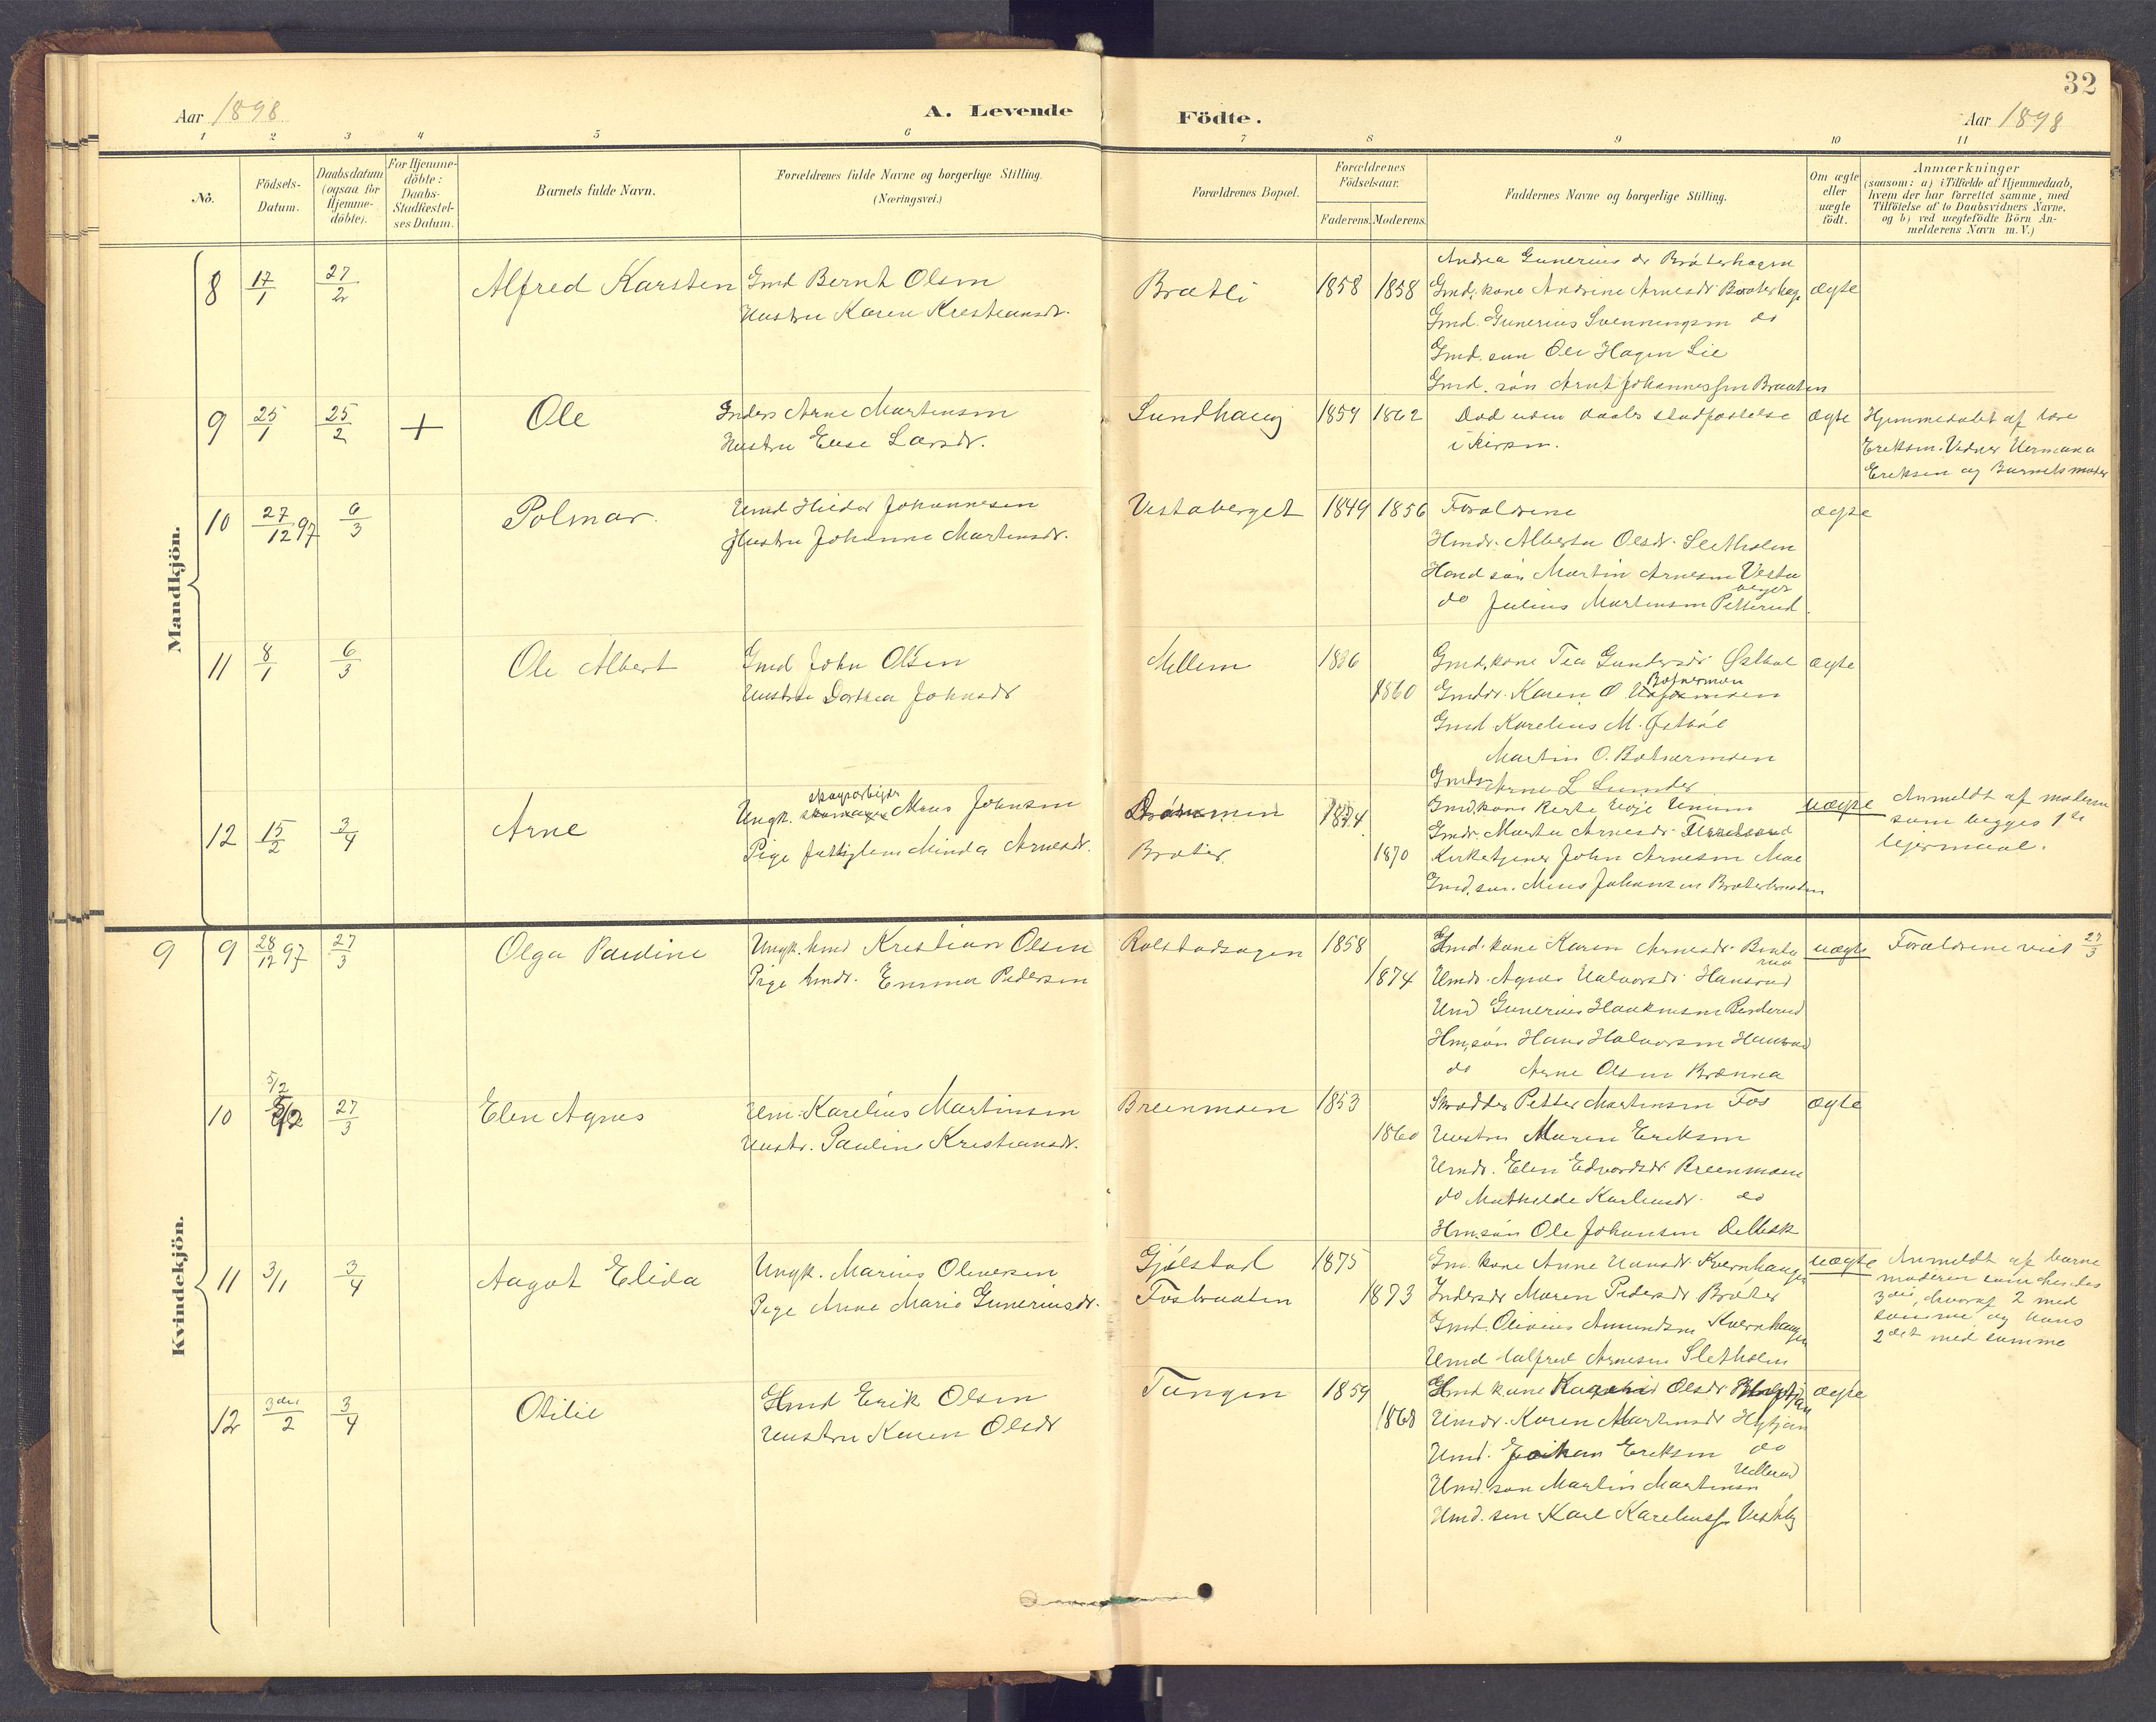 32
Aar 1898
A. Levende Födte.
Aar 1898
1 2 3 4 5 6 7 8 9 10 11
No.
Födsels-Datum.
Daabsdatum (ogsaa for Hjemme-döbte).
For Hjemme-döbte: Daabs-Stadfæstel-ses Datum.
Barnets fulde Navn.
Forældrenes fulde Navne og borgerlige Stilling. (Næringsvei.)
Forældrenes Bopæl.
Forældrenes Födselsaar.
Faderens. Moderens.
Faddernes Navne og borgerlige Stilling.
Om ægte eller uægte födt.
Anmærkninger
(saasom: a) i Tilfælde af Hjemmedaab,
hvem der har forrettet samme, med
Tilföielse af to Daabsvidners Navne.
og b) ved uægtefödte Börn An-
melderens Navn m. V.)
Mandkjön.
8 17/1 27/2 Alfred Karsten Gmd Bernt Olsen
Hustru Karen Krestiansdr.
Bratli 1858 1858
Andrea Gunerius dr Bråterhagen
Gmd. kone Andrine Arnesdr Bråterhag ægte
Gmd. Gunerius Svenningsen do
Gmd. søn Ole Hagen Lie
Gmd. søn Arnt Johannessen Braaten
9 25/1 25/2 + Ole Inders Arne Martinsen
Hustru Else Larsdr.
Sundhaug 1854 1862
Død uden daabs stadfæstelse
i Kirken.
ægte Hjemmedøbt af Lars
Eriksen. Vidner Hermana
Eriksen og Barnets moder
10 27/12 97 6/3 Polmar Hmd Hildor Johannesen
Hustru Johanne Martinsdr.
Vestaberget 1849 1856 Forældrene ægte
Hmdr. Alberta Olsdr. Sletholen
Hmd søn Martin Arnesen Vesta
berget
do Julius Martinsen Petterud.
11 8/1 6/3 Ole Albert Gmd John Olsen
Hustru Dorthea Johnsdr
Mellem 1836
1860
Gmd. kone Tea Gundersdr Østbøl ægte
Gmddr. Karen O Botnermoen
Gmd Karelius M. Østbøl
Martin O. Botnermoen
Gmds Arne L Lunder
12 15/2 3/4 Arne Ungk. skogsarbejder Mons Johnsen
Pige fattiglem Minda Arnesdr.
Bråter.
1874
1870
Gmd. kone Berte
Gmdr. Marta Arnesdr.
Kirketjener John Arnesen Moe
Gmd. søn. Mons Johansen Bråterbraaten
uægte Anmeldt af moderen
som begges 1ste
lejermaal.
Kvindekjön.
9 9 28/12 97 27/3 Olga Pauline Ungk. hmd Kristian Olsen
Pige hmdr. Emma Pedersen
Rolstadsagen 1858
1874
Hmd. kone Karen Arnesdr.
Hmdr. Agnes Halvorsdr. Hansrud
Hmd Gunerius Haakensen
Hm. søn Hans Halvorsen Hansrud
do Arne Olsen Brænna
uægte Forældrene viet 27/3
10 5/2 27/3 Elen Agnes Hm. Karelius Martinsen
Hustr. Pauline Kristiansdr.
Breenmoen 1853
1860
Skrædder Petter Martinsen Fos ægte
Hustru Maren Eriksen
Hmdr. Elen Edvardsdr Breenmoen
do Mathilde Karliusdr. do
Hm. søn Ole Johansen
11 3/1 3/4 Aagot Elida Ungk. Marius Oliversen
Pige Anne Marie Guneriusdr.
Gjølstad
Fosbraaten
1875
1873
Gm. kone Anne Hansdr. Kvernhaugen
Indersdr Maren Pedersdr Bråter
Gmd. Olivius Amundsen Kvernhaugen
Hmd Valfred Arnesen Sletholen
uægte Anmeldt af barne
moderen som hendes
3die, hvoraf 2 med
samme og hans
2det med samme
12 3die/2 3/4 Otilie Hmd Erik Olsen
Hustru Karen Olsdr
Tangen 1859
1868
Hmd kone Olsdr ægte
Hmdr. Karen Martinsdr Hytjan
Hmd. Johan Eriksen do
Hmd. søn Martin Martinsen
Hmd. søn Karl Kareliuss. Vestby